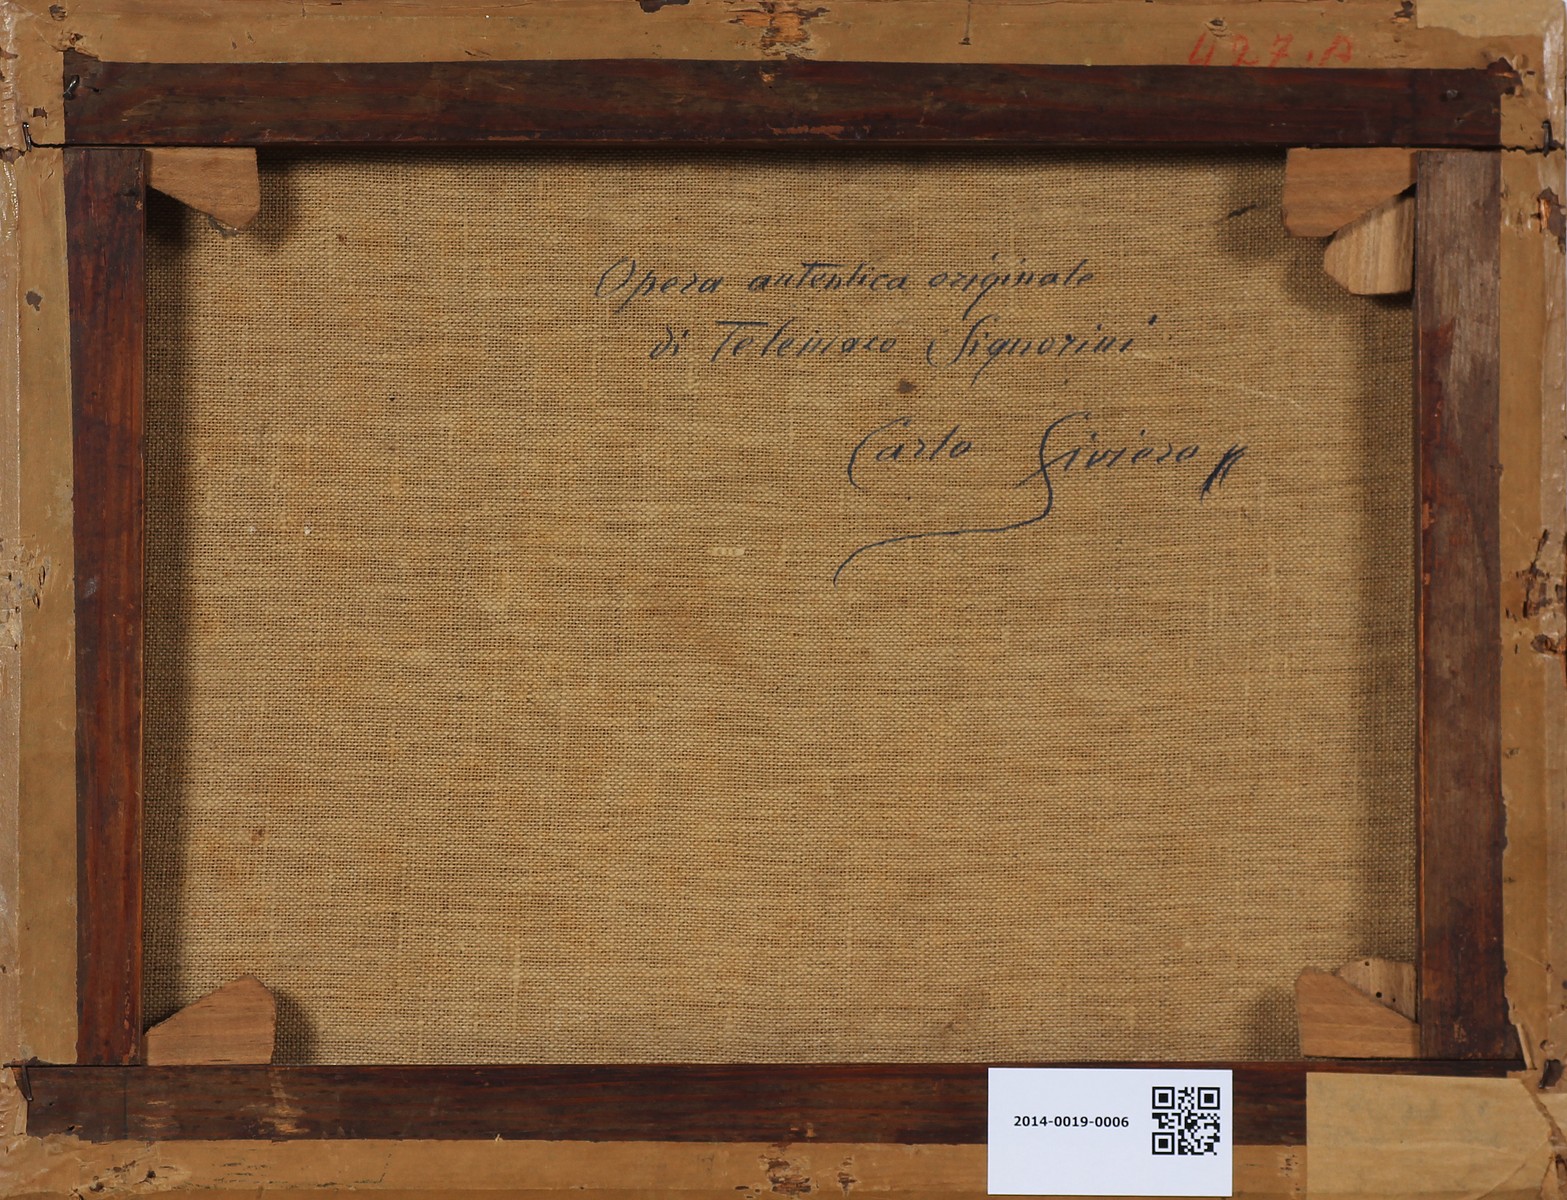 427.A
Opera autentica originale
di Telemaco Signorini
Carlo Siviero
2014-0019-0006